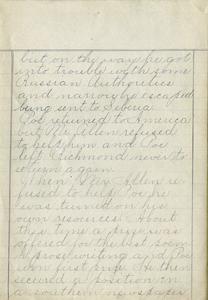 but on the way he got
into trouble with some
Russian Authorities
and narrowly escaped
being sent to Siberia.
Poe returned to America
but Mr Allen refused
to help him and Poe
left Richmond never to
return again.
When Mr Allen re-
fused to help Poe he
was turned on his
own resources. About
this time a prize was
offered for the best poem
& prose writing and Poe
won first prize. He then
secured a position in
a southern newspaper